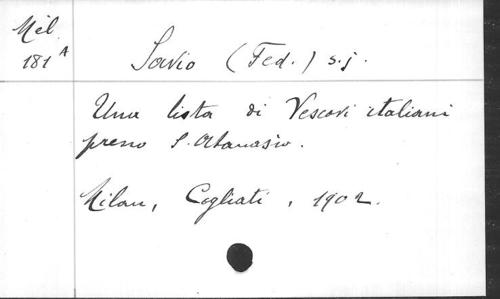 Mél.
181 A
Savio (Fed.) s.j.
Una lista di Vescovi italiani
presso S. Atanasio.
Milan, Cogliati, 1902.